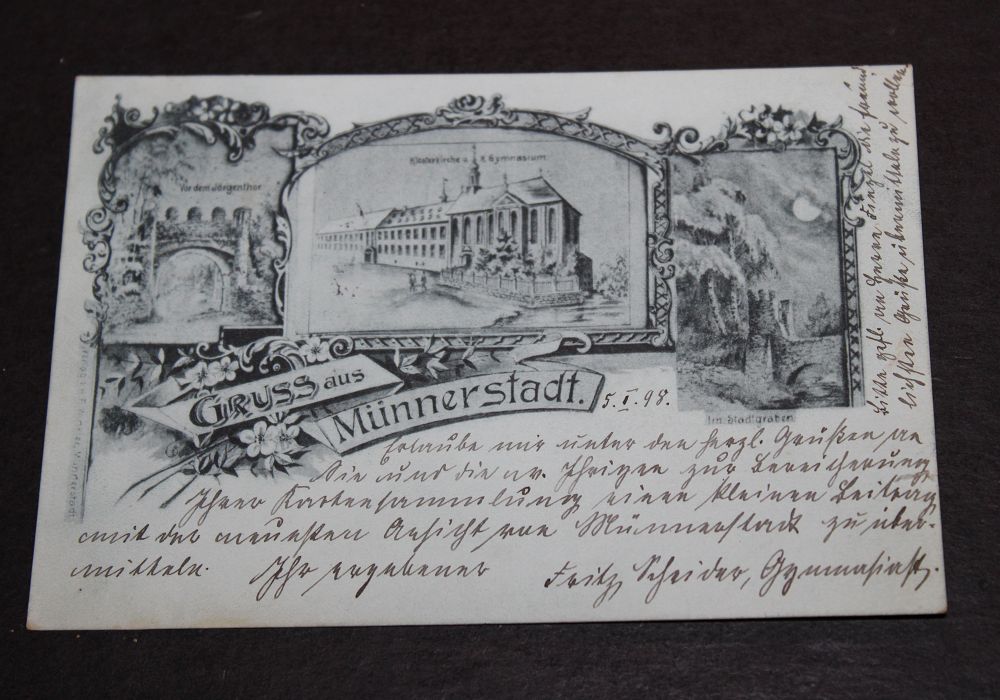 Vor dem Jörgenthor
Klosterkirche u. K. Gymnasium
Im Stadtgraben
Gruss aus
Münnerstadt.
5. I. 98.
Erlaube mir unter den herzl. Grüßen an
Sie und die w. Ihrigen zur Bereicherung
Ihrer Kartensammlung einen kleinen Beitrag
mit der neuesten Ansicht von Münnerstadt zu über-
mitteln. Ihr ergebener
Fritz Scheider, Gymnasiast.
Bitte gefl. an Herrn die freund
lichsten Grüße übermitteln zu wollen.